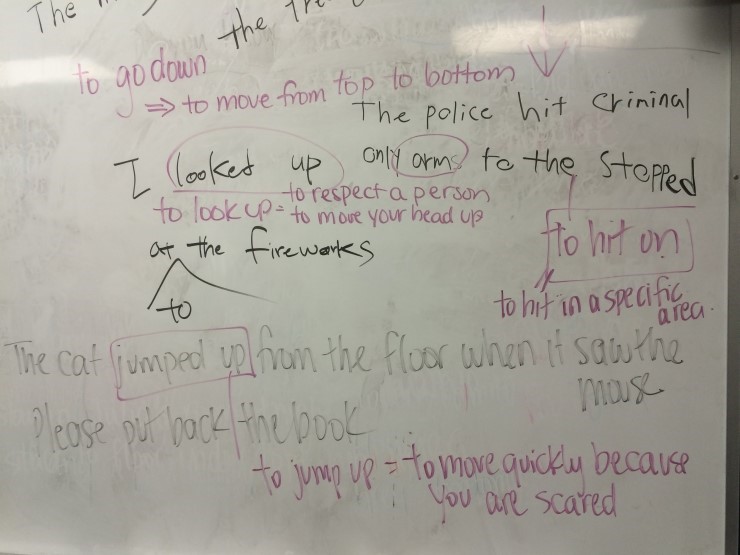 The
the
to go down
⇒ to move from top to bottom
The police hit criminal
I looked up only arms to the stopped
to respect a person
to look up = to move your head up
at the fireworks
to hit on
to
to hit in a specific
area.
The cat jumped up from the floor when it saw the
mouse
Please put back the book
to jump up = to move quickly because
you are scared